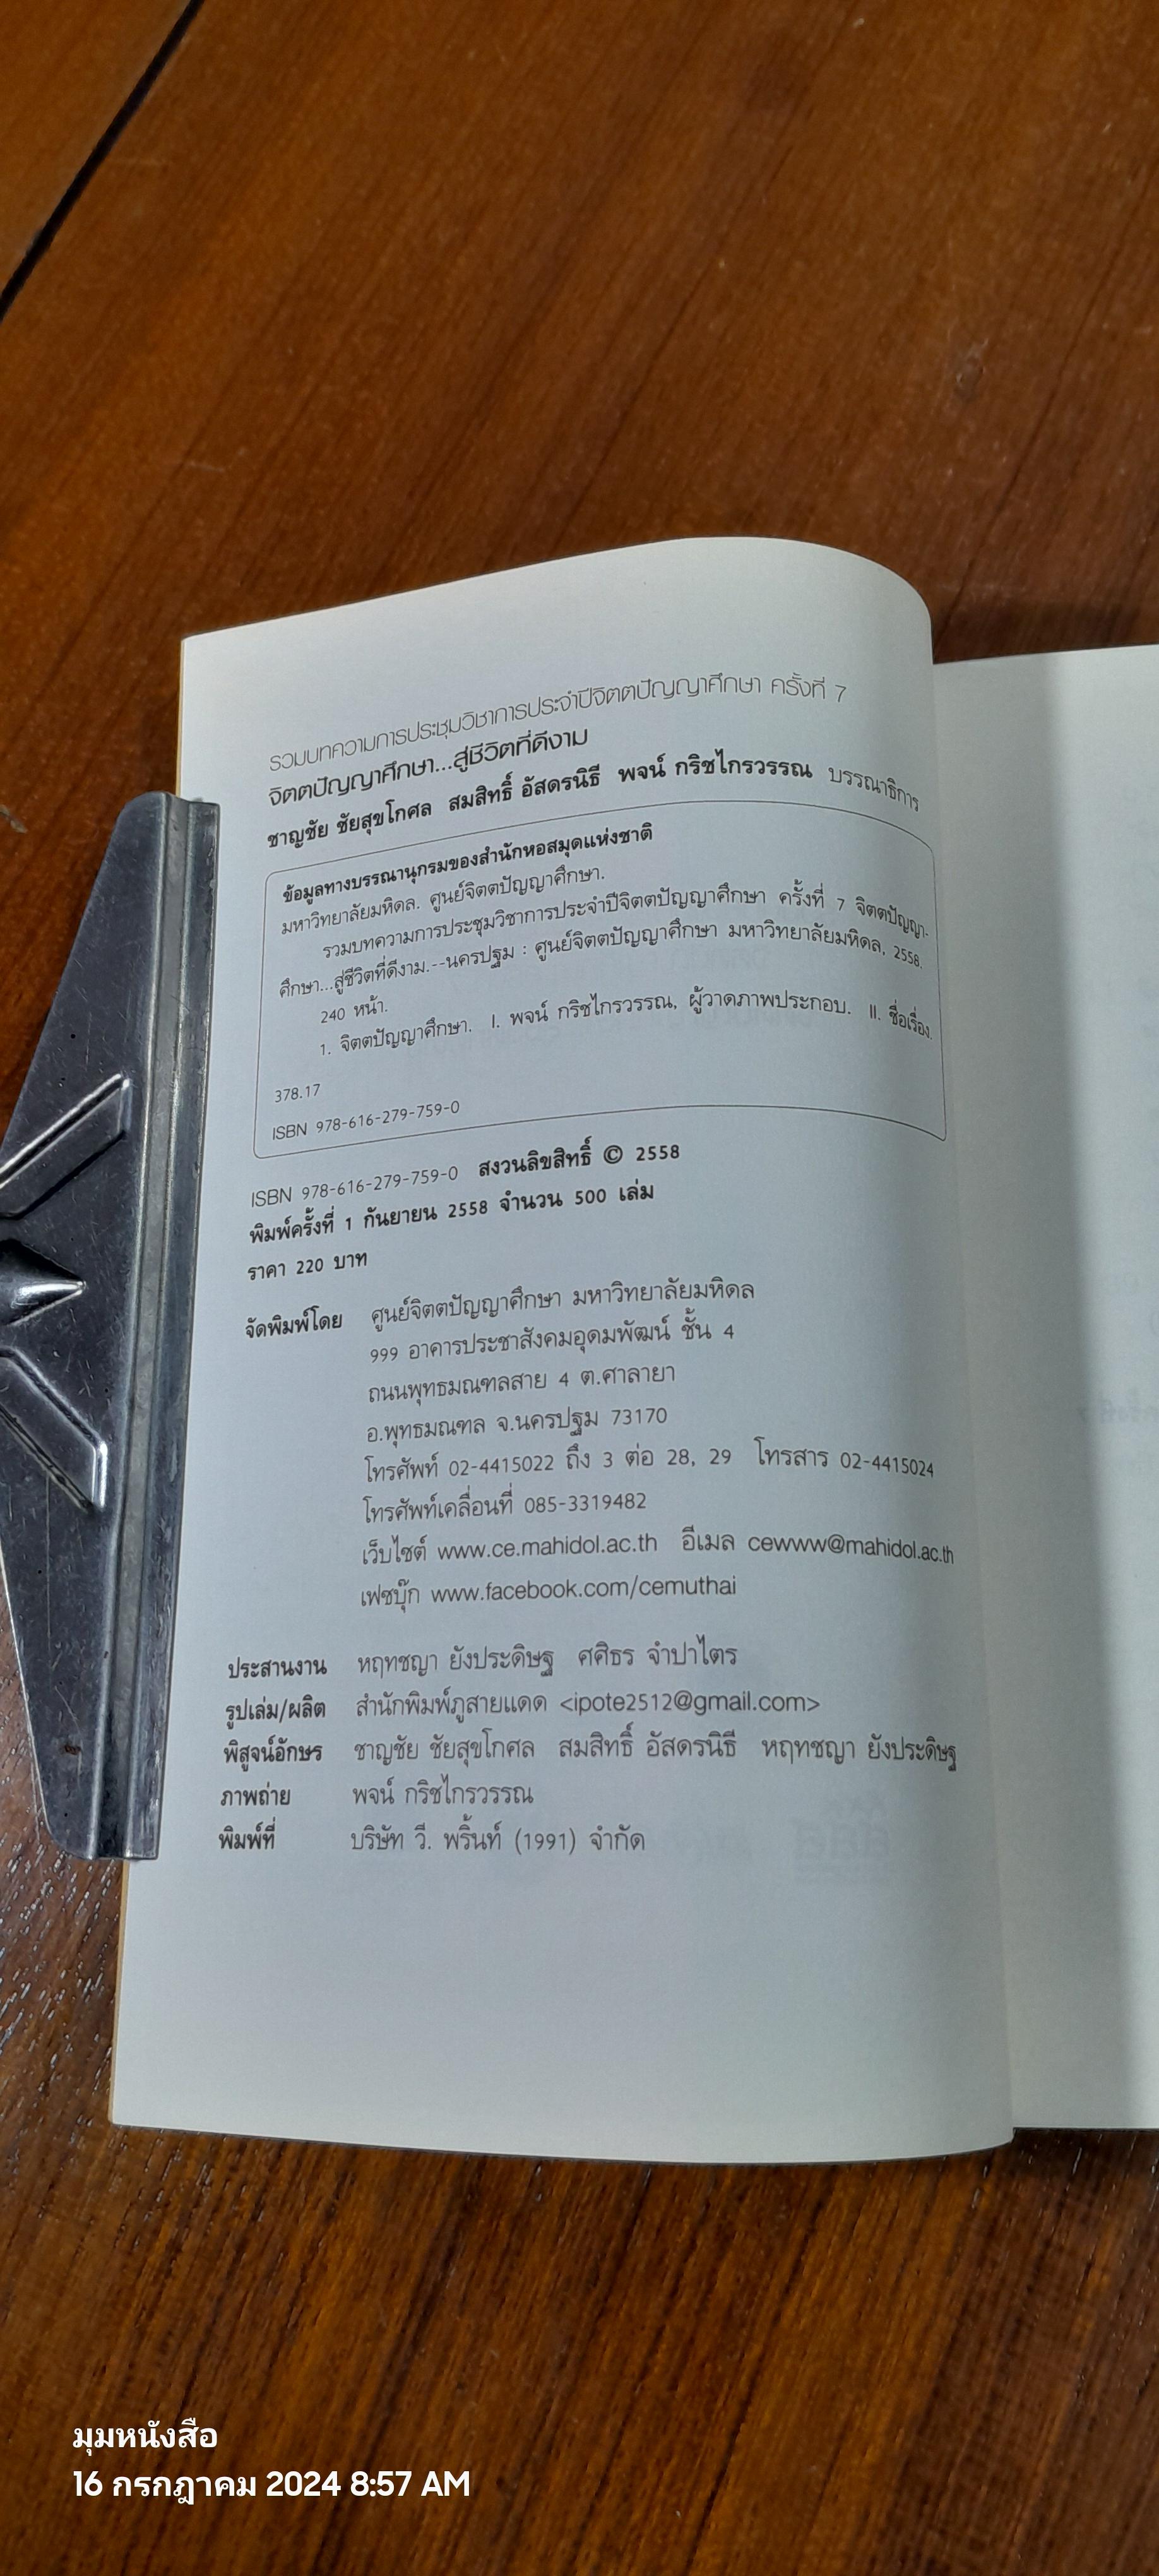 รวมบทความการประชุมวิชาการประจำปีจิตตปัญญาศึกษา ครั้งที่ 7
จิตตปัญญาศึกษา...สู่ชีวิตที่ดีงาม
ชาญชัย ชัยสุขโกศล สมสิทธิ์ อัสดรนิธี พจน์ กริชไกรวรรณ บรรณาธิการ
ข้อมูลทางบรรณานุกรมของสำนักหอสมุดแห่งชาติ
มหาวิทยาลัยมหิดล. ศูนย์จิตตปัญญาศึกษา.
รวมบทความการประชุมวิชาการประจำปีจิตตปัญญาศึกษา ครั้งที่ 7 จิตตปัญญา-
ศึกษา...สู่ชีวิตที่ดีงาม.--นครปฐม : ศูนย์จิตตปัญญาศึกษา มหาวิทยาลัยมหิดล, 2558.
240 หน้า.
1. จิตตปัญญาศึกษา. I. พจน์ กริชไกรวรรณ, ผู้วาดภาพประกอบ. II. ชื่อเรื่อง.
378.17
ISBN 978-616-279-759-0
ISBN 978-616-279-759-0 สงวนลิขสิทธิ์ © 2558
พิมพ์ครั้งที่ 1 กันยายน 2558 จำนวน 500 เล่ม
ราคา 220 บาท
จัดพิมพ์โดย ศูนย์จิตตปัญญาศึกษา มหาวิทยาลัยมหิดล
999 อาคารประชาสังคมอุดมพัฒน์ ชั้น 4
ถนนพุทธมณฑลสาย 4 ต.ศาลายา
อ.พุทธมณฑล จ.นครปฐม 73170
โทรศัพท์ 02-4415022 ถึง 3 ต่อ 28, 29 โทรสาร 02-4415024
โทรศัพท์เคลื่อนที่ 085-3319482
เว็บไซต์ www.ce.mahidol.ac.th อีเมล cewww@mahidol.ac.th
เฟซบุ๊ก www.facebook.com/cemuthai
ประสานงาน หฤทชญา ยังประดิษฐ ศศิธร จำปาไตร
รูปเล่ม/ผลิต สำนักพิมพ์ภูสายแดด <ipote2512@gmail.com>
พิสูจน์อักษร ชาญชัย ชัยสุขโกศล สมสิทธิ์ อัสดรนิธี หฤทชญา ยังประดิษฐ
ภาพถ่าย พจน์ กริชไกรวรรณ
พิมพ์ที่ บริษัท วี. พริ้นท์ (1991) จำกัด
มุมหนังสือ
16 กรกฎาคม 2024 8:57 AM